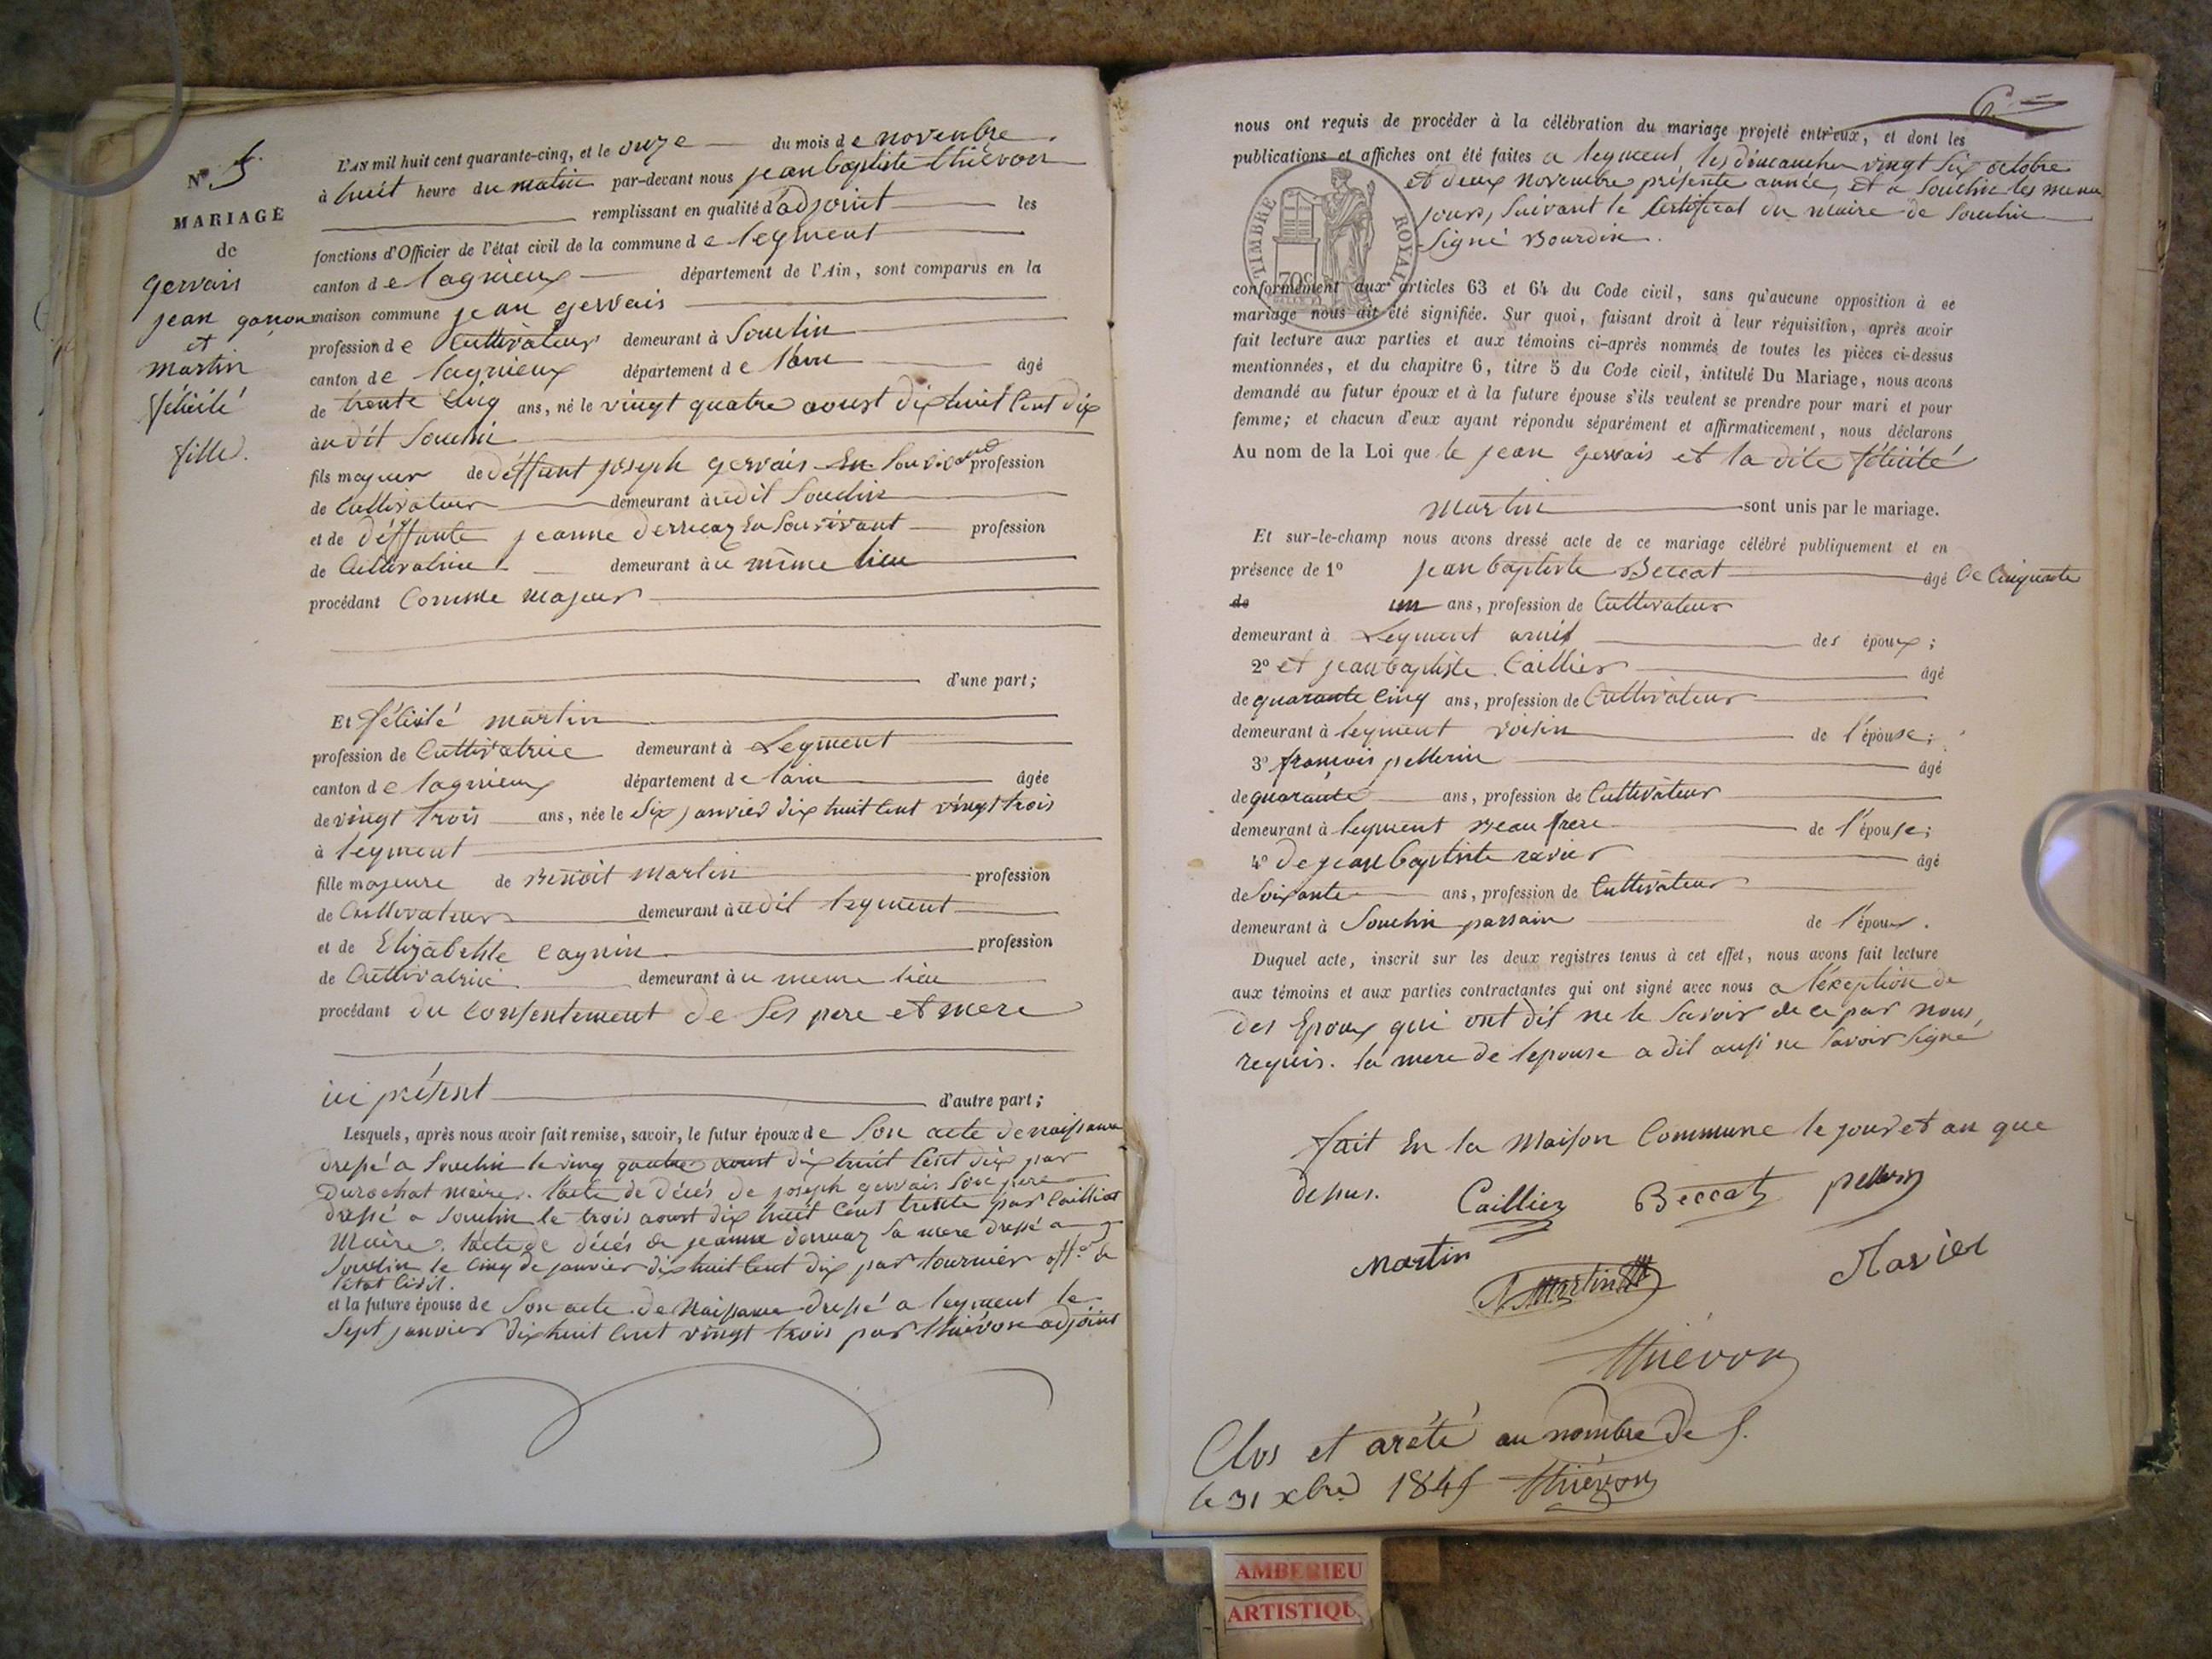 Nº 5.
MARIAGE
de
gervais
jean garcon
et
martin
félicité
fille.
L'AN mil huit cent quarante-cinq, et le onze du mois de novembre
à huit heure du matin par-devant nous jean baptiste thiévon
remplissant en qualité d'adjoint les
fonctions d'Officier de l'état civil de la commune de leyment
canton de lagnieux département de l'Ain, sont comparus en la
maison commune jean gervais
profession de Cultivateur demeurant à Souclin
canton de lagnieux département de lain âgé
de trente cinq ans, né le vingt quatre aoust dix huit cent dix
à u dit Souclin
fils majeur de déffunt joseph gervais En Son vivant profession
de Cultivateur demeurant à udit Souclin
et de déffunte jeanne derruaz En Son vivant profession
de Cultivatrice demeurant à u même lieu
procédant Comme majeur
d'une part;
Et félicité martin
profession de Cultivatrice demeurant à Leyment
canton de lagnieux département de lain âgée
de vingt trois ans, née le Six janvier dix huit cent vingt trois
à leyment
fille majeure de Benoit martin profession
de Cultivateur demeurant à udit leyment
et de Elizabehte cagnin profession
de Cultivatrice demeurant à u meme lieu
procédant du consentement de Ses pere et mere
ici présent d'autre part;
Lesquels, après nous avoir fait remise, savoir, le futur époux de Son acte de naissance
dressé a Souclin le ving quatre aoust dix huit cent dix par
Durochat maire. lacte de décés de joseph gervais Son pere
dressé a Souclin le trois aoust dix huit cent trente par Cailliat
Maire. lacte de décés de jeanne derruaz Sa mere dressé a
Souclin le Cinq de janvier dix huit cent dix par tournier off.er de
létat Civil.
et la future épouse de Son acte de Naissance dressé a leyment le
Sept janvier dix huit cent vingt trois par thiévon adjoint
6.me
nous ont requis de procéder à la célébration du mariage projeté entr'eux, et dont les
publications et affiches ont été faites a leyment les dimanches vingt Six octobre
et deux novembre présente année, et a Souclin les meme
jours, Suivant le Certificat du maire de Souclin
Signé Bourdin.
TIMBRE ROYAL
70c
conformément aux articles 63 et 64 du Code civil, sans qu'aucune opposition à ce
mariage nous ait été signifiée. Sur quoi, faisant droit à leur réquisition, après avoir
fait lecture aux parties et aux témoins ci-après nommés de toutes les pièces ci-dessus
mentionnées, et du chapitre 6, titre 5 du Code civil, intitulé Du Mariage, nous avons
demandé au futur époux et à la future épouse s'ils veulent se prendre pour mari et pour
femme; et chacun d'eux ayant répondu séparément et affirmativement, nous déclarons
Au nom de la Loi que le jean gervais et la dite félicité
martin sont unis par le mariage.
Et sur-le-champ nous avons dressé acte de ce mariage célébré publiquement et en
présence de 1º jean baptiste Beccat âgé De Cinquante
de un ans, profession de Cultivateur
demeurant à Leyment amis des époux;
2º et jean baptiste Caillier âgé
de quarante cinq ans, profession de Cultivateur
demeurant à leyment voisin de l'épouse;
3º françois pellerin âgé
de quarante ans, profession de Cultivateur
demeurant à leyment Beau frere de l'épouse;
4º de jean baptiste ravier âgé
de Soixante ans, profession de Cultivateur
demeurant à Souclin parrain de l'époux.
Duquel acte, inscrit sur les deux registres tenus à cet effet, nous avons fait lecture
aux témoins et aux parties contractantes qui ont signé avec nous a léxeption de
des Epoux qui ont dit ne le Savoir de ce par nous
requis. la mere de lepouse a dit aussi ne Savoir Signé
fait En la Maison Commune le jour et an que
dessus.
Caillier Beccat pellerin
Martin
Martin
Ravier
thiévon
Clos et arété au nombre de 5.
le 31 xbre 1845 thiévon
AMBERIEU
ARTISTIQU